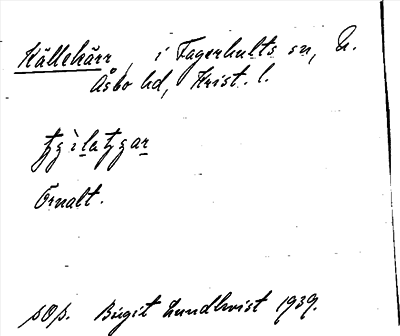 Källekärr, i Fagerhults sn, N.
Åsbo hd, Krist. l.
Ornalt.
pOp. Birgit Lundkvist 1939.